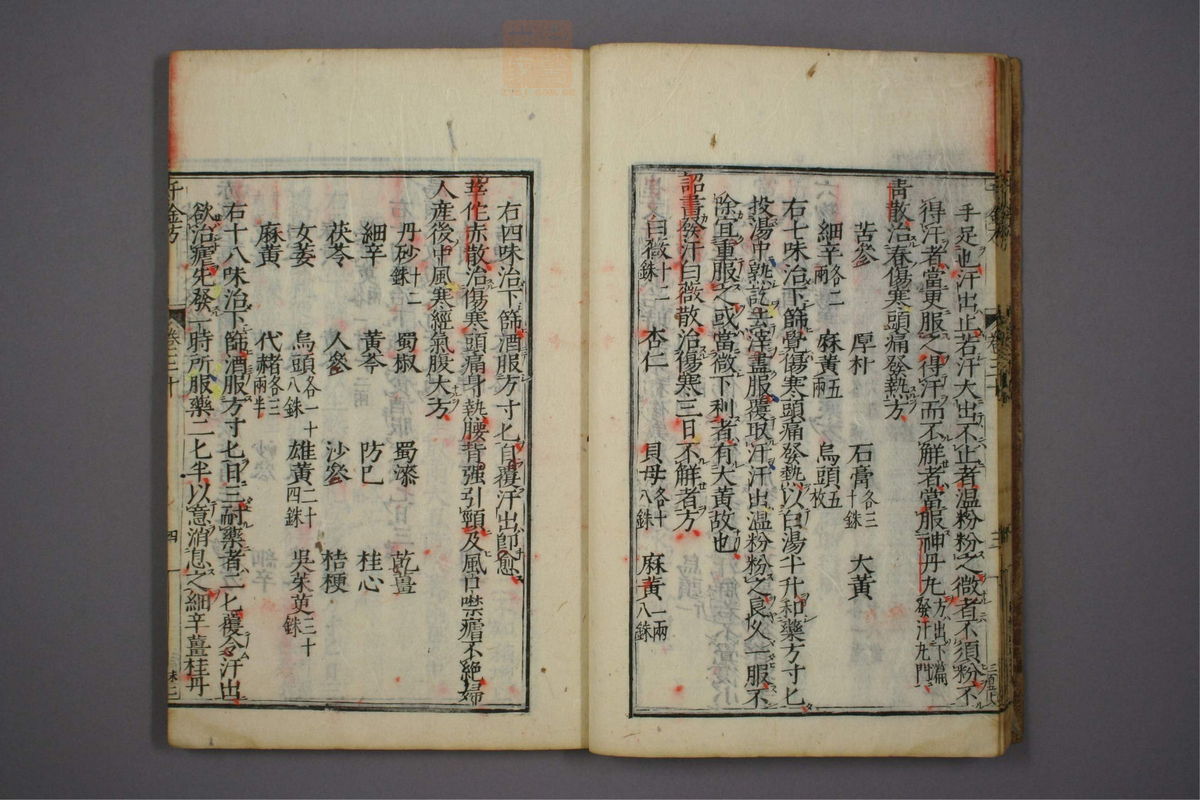 手足也汗出止若汗大出不止者温粉粉之微者不須粉不
得汗者當更服之得汗而不解者當服神丹丸方出下篇發汗丸門
青散治春傷寒頭痛發熱方
苦參 厚朴 石膏各三十銖 大黃
細辛各二兩 麻黃五兩 烏頭五枚
右七味治下篩覺傷寒頭痛發熱以白湯半升和藥方寸匕
投湯中熟訖去滓盡服覆取汗汗出温粉粉之良久一服不
除宜重服之或當微下利者有大黃故也
詔書發汗白薇散治傷寒三日不解者方
白薇十二銖 杏仁 貝母各十八銖 麻黃一兩八銖
右四味治下篩酒服方寸匕自覆汗出即愈
華佗赤散治傷寒頭痛身熱腰背強引頸及風口噤瘧不絕婦
人產後中風寒經氣腹大方
丹砂十二銖 蜀椒 蜀漆 乾薑
細辛 黃芩 防巳 桂心
茯苓 人參 沙參 桔梗
女萎 烏頭各一十八銖 雄黃二十四銖 吳茱萸三十銖
麻黃 代赭各二兩半
右十八味治下篩酒服方寸匕日三耐藥者二匕覆令汗出
欲治瘧先發一時所服藥二匕半以意消息之細辛薑桂丹
千金方 卷三十 四